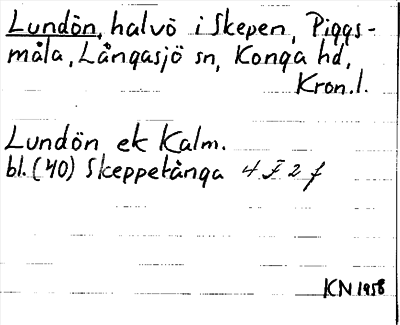 Lundön, halvö i Skepen, Piggs-
måla, Långasjö sn, Konga hd,
Kron.l.
Lundön ek Kalm.
bl. (40) Skeppetånga 4 F 2 f
KN 1958